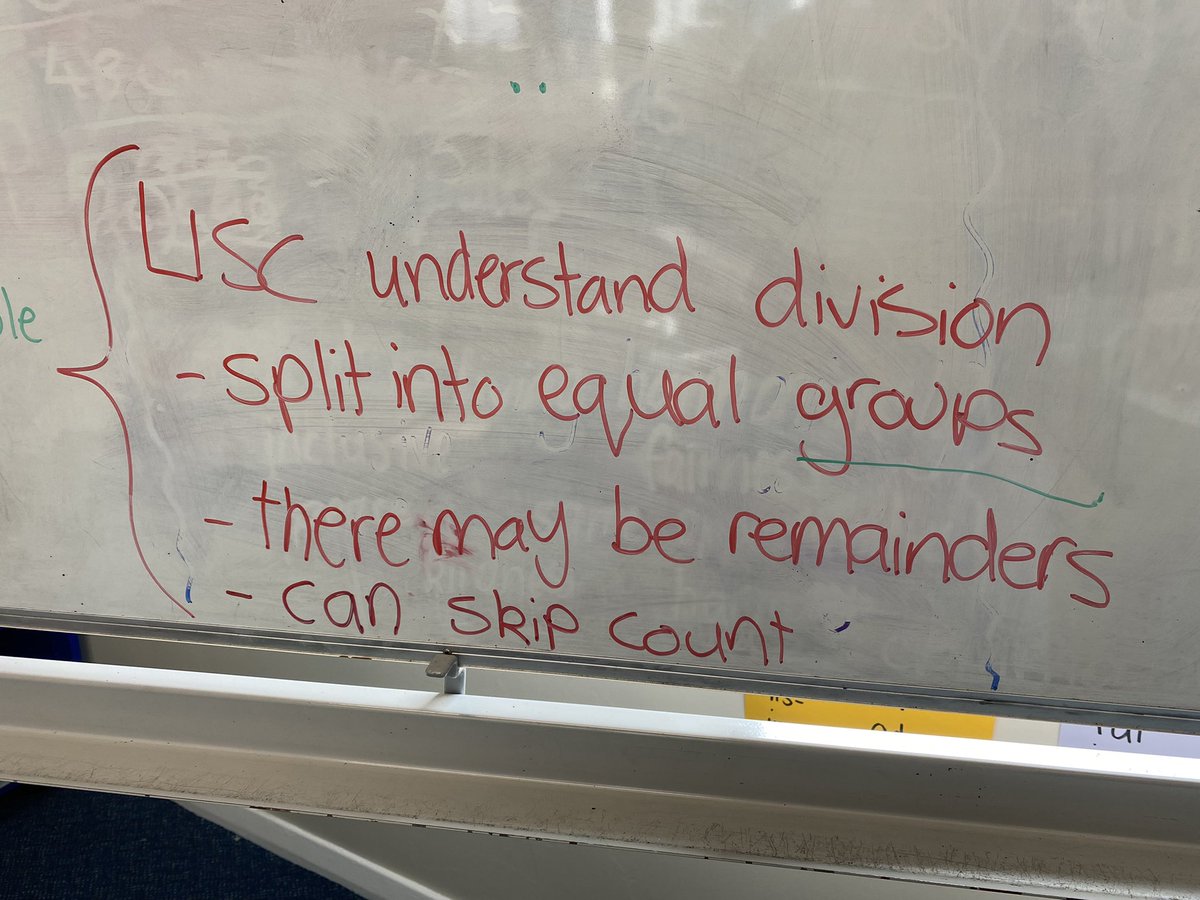 USC understand division
- split into equal groups
- there may be remainders
- can skip count